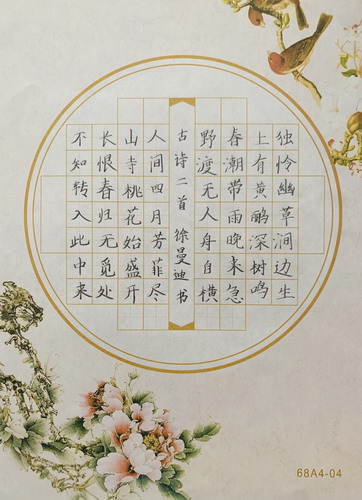 独怜幽草涧边生
上有黄鹂深树鸣
春潮带雨晚来急
野渡无人舟自横
古诗二首 徐曼迪书
人间四月芳菲尽
山寺桃花始盛开
长恨春归无觅处
不知转入此中来
68A4-04